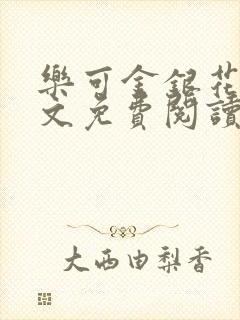 樂可金銀花
文免費閱讀
大西由梨香